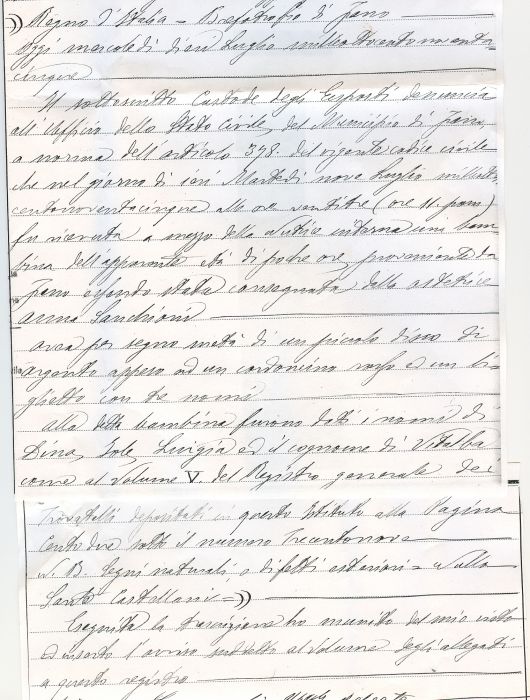 )) Regno d'Italia = Brefotrofio di Fano
Oggi mercoledì dieci Luglio milleottocentonovanta
cinque
Il sottoscritto Custode degli Esposti denuncia
all'Ufficio dello Stato Civile del Municipio di Fano,
a norma dell'articolo 378 del vigente codice civile
che nel giorno di ieri Martedì nove Luglio milleotto
centonovantacinque alle ore ventitre (ore 11 pom)
fu ricevuta a mezzo della Nutrice interna una bam
bina dell'apparente età di poche ore proveniente da
Fano essendo stata consegnata dalla ostetrice
Anna Sanchioni
avea per segno metà di un piccolo disco di
argento appeso ad un cordoncino rosso ed un bi-
glietto con tre nomi
Alla detta bambina furono dati i nomi di
Dina, Iole, Luigia ed il cognome di Vitalba
come al Volume V. del Registro generale dei
Trovatelli depositati in questo Istituto alla Pagina
Cento due sotto il numero Trecentonove
N. B. Segni naturali, o difetti esteriori = Nulla
Sante Castellani =))
Eseguita la trascrizione ho munito del mio visto
ed inserto l'avviso suddetto al Volume degli allegati
a questo registro